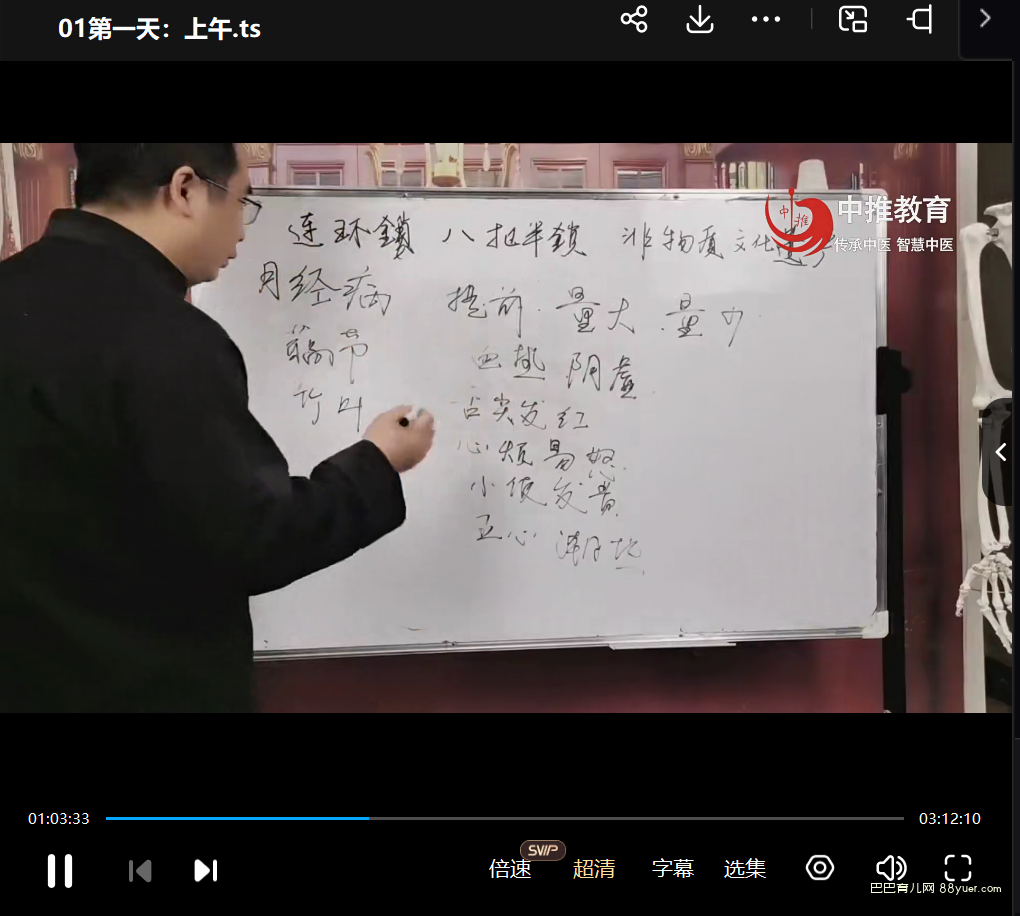 01第一天：上午.ts
中推
中推教育
传承中医 智慧中医
连环鎖 八把半鎖 非物质文化遗产
月经病 提前 量大 量少
血热 阴虚
竹叶 舌尖发红
心烦易怒
小便发黄
五心 潮热
01:03:33
03:12:10
SVIP
倍速 超清 字幕 选集
巴巴育儿网 88yuer.com